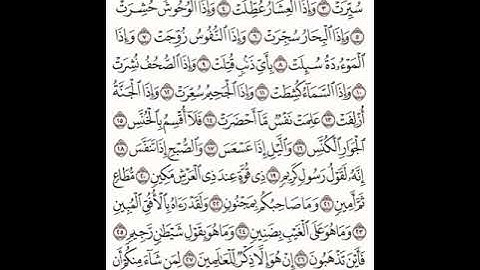 سُيِّرَتْ ٣ وَإِذَا الْعِشَارُ عُطِّلَتْ ٤ وَإِذَا الْوُحُوشُ حُشِرَتْ
٥ وَإِذَا الْبِحَارُ سُجِّرَتْ ٦ وَإِذَا النُّفُوسُ زُوِّجَتْ ٧ وَإِذَا
الْمَوْءُۥدَةُ سُئِلَتْ ٨ بِأَيِّ ذَنۢبٍ قُتِلَتْ ٩ وَإِذَا الصُّحُفُ نُشِرَتْ
١٠ وَإِذَا السَّمَآءُ كُشِطَتْ ١١ وَإِذَا الْجَحِيمُ سُعِّرَتْ ١٢ وَإِذَا الْجَنَّةُ
أُزْلِفَتْ ١٣ عَلِمَتْ نَفْسٌ مَّآ أَحْضَرَتْ ١٤ فَلَآ أُقْسِمُ بِالْخُنَّسِ ١٥
الْجَوَارِ الْكُنَّسِ ١٦ وَالَّيْلِ إِذَا عَسْعَسَ ١٧ وَالصُّبْحِ إِذَا تَنَفَّسَ ١٨
إِنَّهُۥ لَقَوْلُ رَسُولٍ كَرِيمٍ ١٩ ذِي قُوَّةٍ عِندَ ذِي الْعَرْشِ مَكِينٍ ٢٠ مُّطَاعٍ
ثَمَّ أَمِينٍ ٢١ وَمَا صَاحِبُكُم بِمَجْنُونٍ ٢٢ وَلَقَدْ رَءَاهُ بِالْأُفُقِ الْمُبِينِ
٢٣ وَمَا هُوَ عَلَى الْغَيْبِ بِضَنِينٍ ٢٤ وَمَا هُوَ بِقَوْلِ شَيْطَٰنٍ رَّجِيمٍ ٢٥
فَأَيْنَ تَذْهَبُونَ ٢٦ إِنْ هُوَ إِلَّا ذِكْرٌ لِّلْعَٰلَمِينَ ٢٧ لِمَن شَآءَ مِنكُمْ أَن